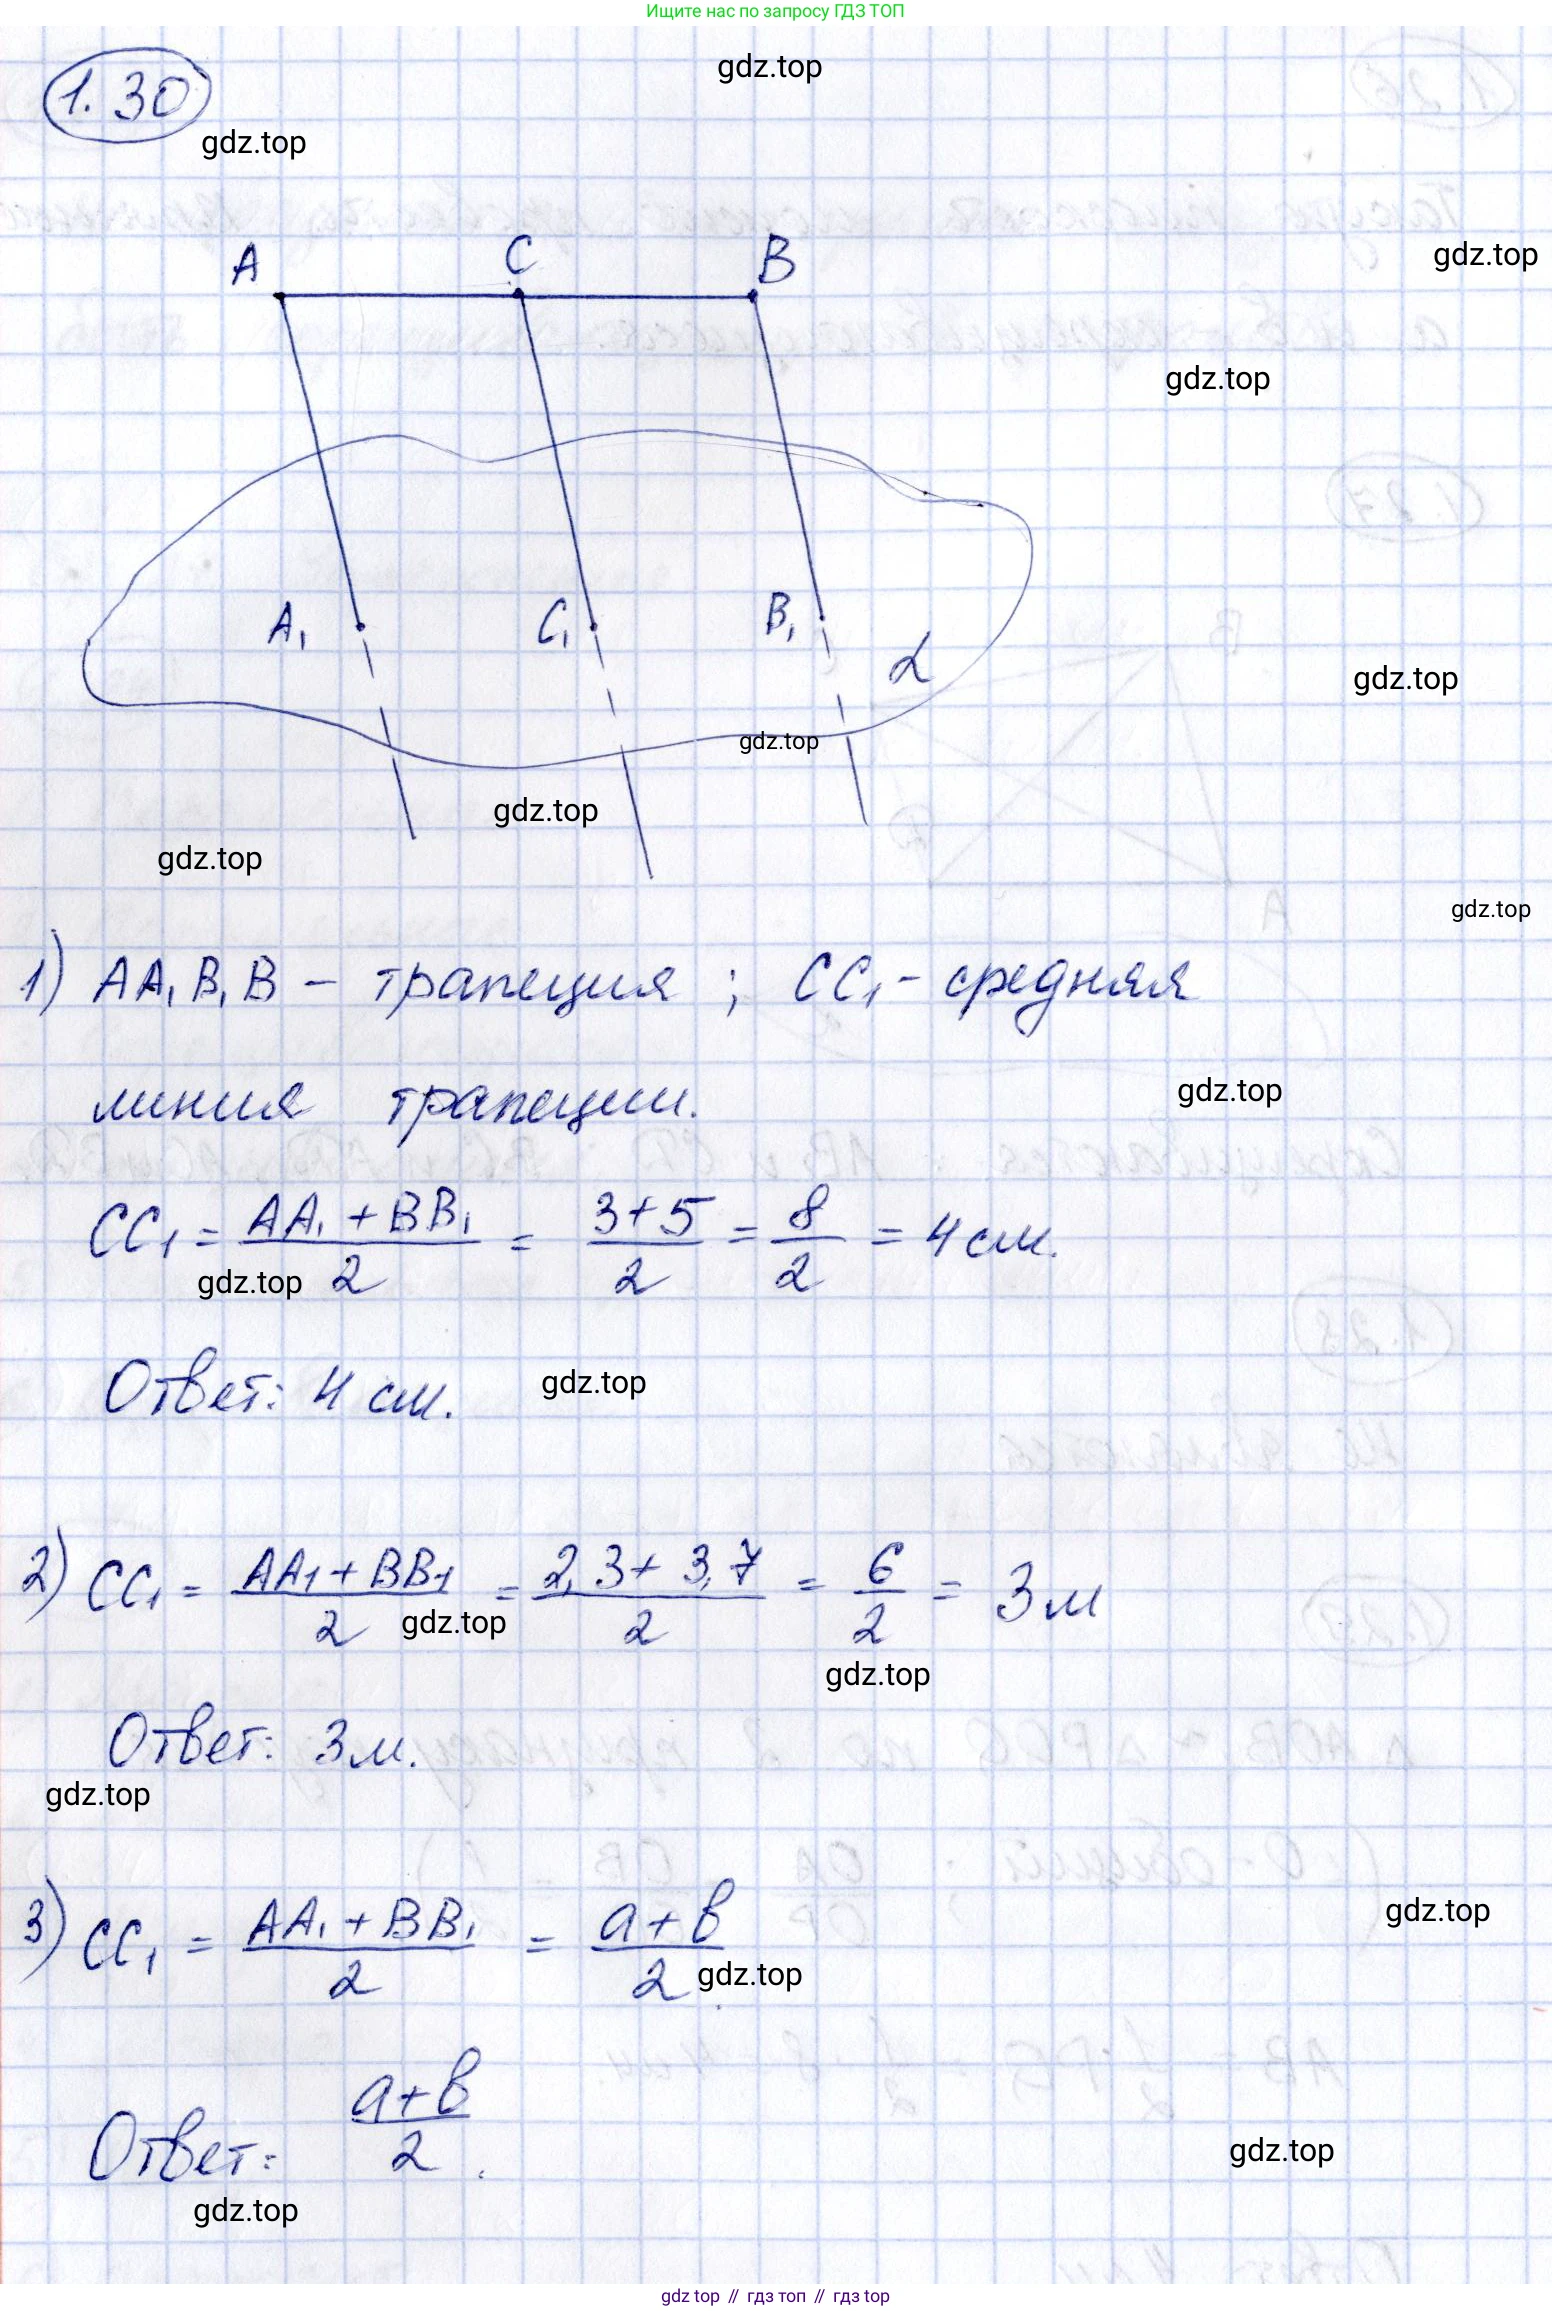 Ищите нас по запросу ГДЗ ТОП
gdz.top
1.30
gdz.top
A C B
gdz.top
gdz.top
A₁ C₁ B₁ α
gdz.top
gdz.top
gdz.top
gdz.top
gdz.top
1) AA₁B₁B – трапеция ; CC₁ – средняя
линия трапеции.
gdz.top
CC₁ = (AA₁ + BB₁)/2 = (3+5)/2 = 8/2 = 4 см.
gdz.top
Ответ: 4 см.
gdz.top
2) CC₁ = (AA₁ + BB₁)/2 = (2,3 + 3,7)/2 = 6/2 = 3 м
gdz.top
gdz.top
Ответ: 3 м.
gdz.top
3) CC₁ = (AA₁ + BB₁)/2 = (a+b)/2.
gdz.top
gdz.top
Ответ: (a+b)/2.
gdz.top
gdz.top
gdz top // гдз топ // гдз top